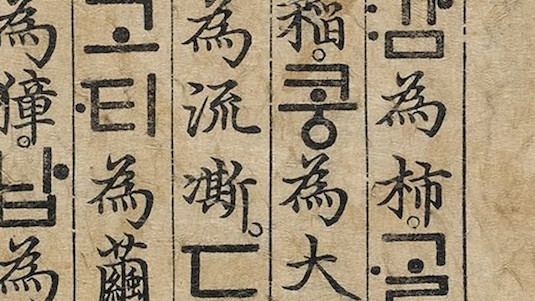 감為柿。ᄀᆞᆯ
稻。콩為大
為流凘。ㄷ
고티為繭
為獐。납為